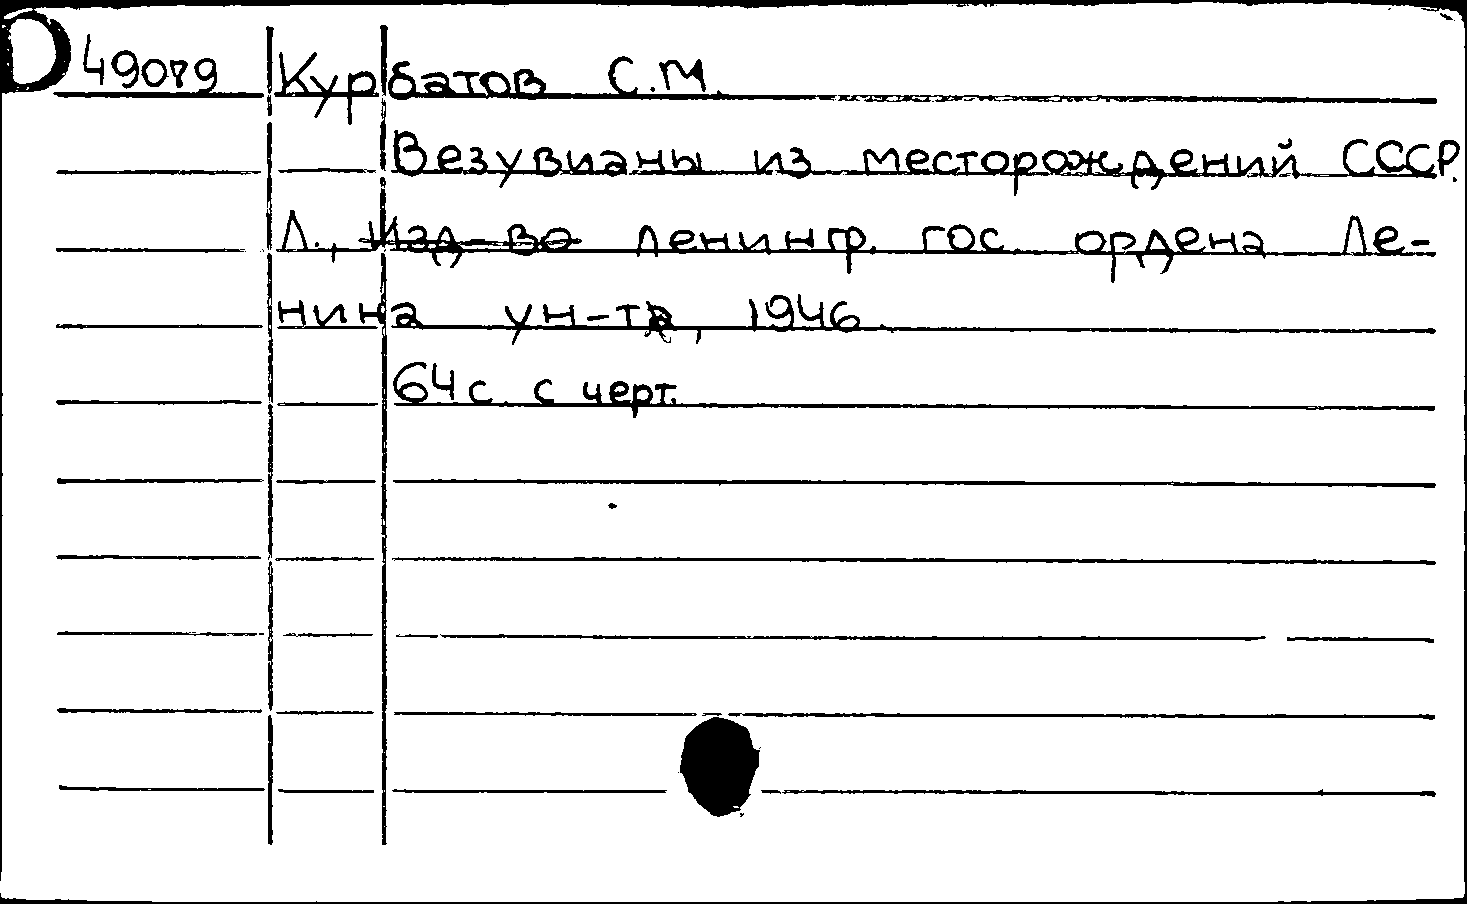 D 49079 Курбатов С.М.
Везувианы из месторождений СССР.
Л., Изд-во ленингр. гос. ордена Ле-
нина ун-та, 1946.
64 с. с черт.